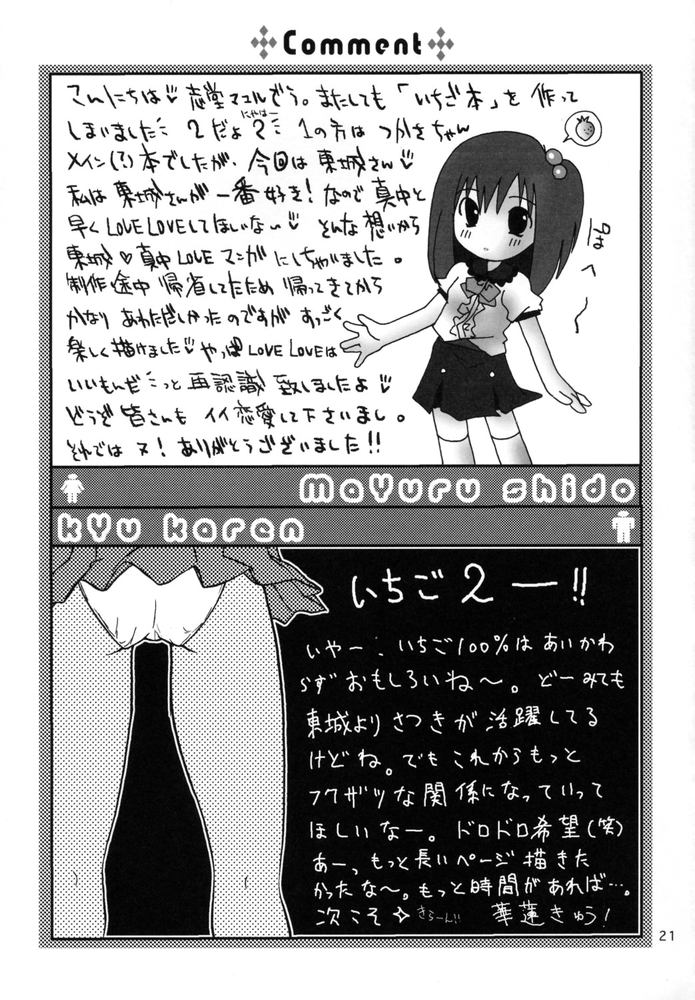 Comment
こんにちは♡ 志堂マユルでぅ。またしても「いちご本」を作って
しまいました 2だよ2 1の方は つかさちゃん
にゃはー
メイン(?)本でしたが、今回は東城さん♡
私は東城さんが一番好き！なので真中と
早くLOVE LOVEしてほしいな〜♡ そんな想いから
東城♡真中LOVEマンガにしちゃいました。
制作途中帰省してたため帰ってきてから
かなりあわただしかったのですがすっごく
楽しく描けました♡やっぱLOVE LOVEは
いいもんだーっと再認識致しましたよ♡
どうぞ皆さんもイイ恋愛して下さいまし。
それではヌ！ありがとうございました!!
Mayuru shido
kyu karen
いちご2ー!!
いやー、いちご100%はあいかわ
らずおもしろいね〜。どーみても
東城よりさつきが活躍してる
けどね。でもこれからもっと
フクザツな関係になっていって
ほしいなー。ドロドロ希望(笑)
あーっ、もっと長いページ描きた
かったな〜。もっと時間があれば…。
次こそ✧きらーん!! 華蓮きゅう！
21